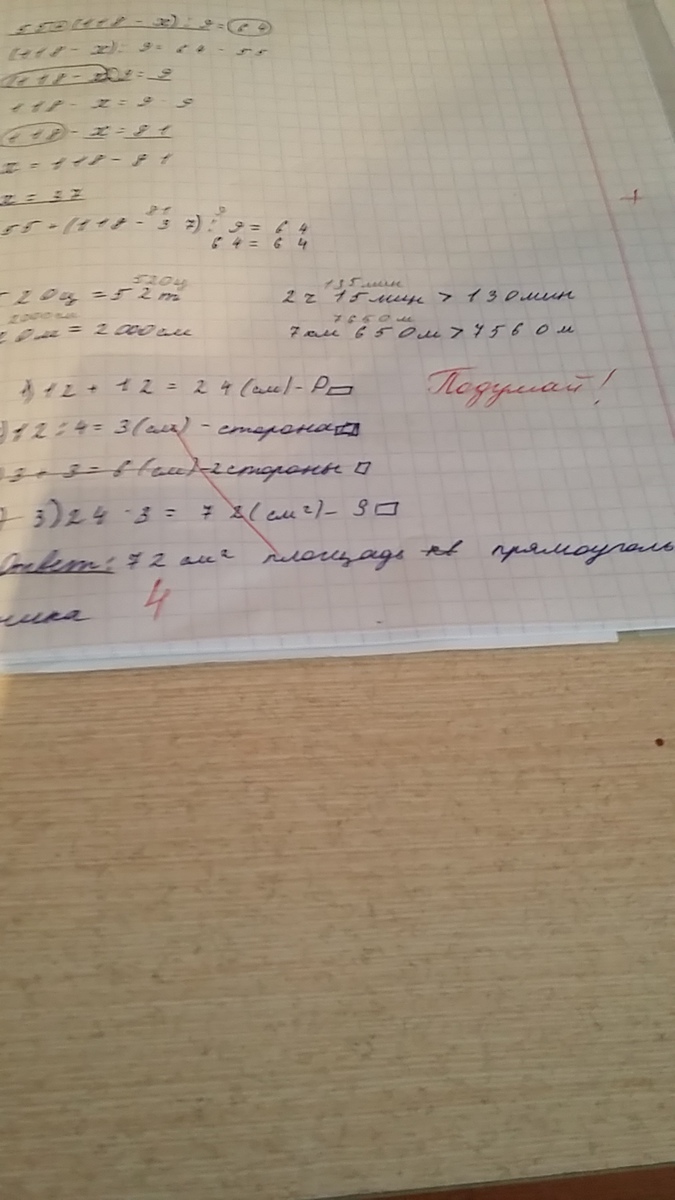 55+(118-x):9=64
(118-x):9=64-55
(118-x):9=9
118-x=9·9
118-x=81
x=118-81
x=37
81 9
55+(118-37):9=64
64=64
520ц 135мин
520ц=52т 2ч 15мин>130мин
2000см 7650м
20м=2000см 7км 650м>7560м
1)12+12=24(см)-P Подумай!
)12:4=3(см)-сторона
3+3=6(см)-2стороны
3)24·3=72(см²)-S
Ответ: 72см² площадь кв прямоуголь
ника 4